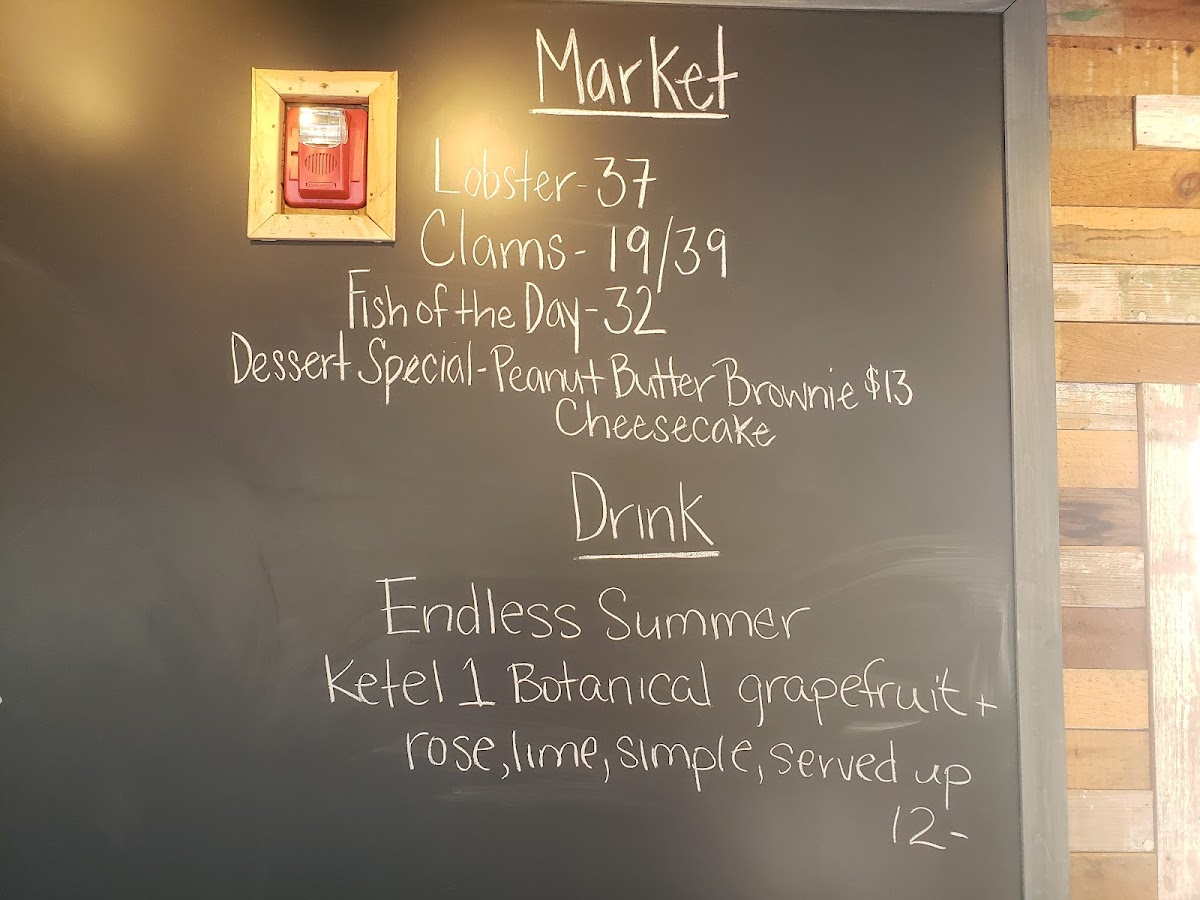 Market
Lobster- 37
Clams- 19/39
Fish of the Day-32
Dessert Special-Peanut Butter Brownie $13
Cheesecake
Drink
Endless Summer
Ketel 1 Botanical grapefruit +
rose, lime, simple, served up
12-